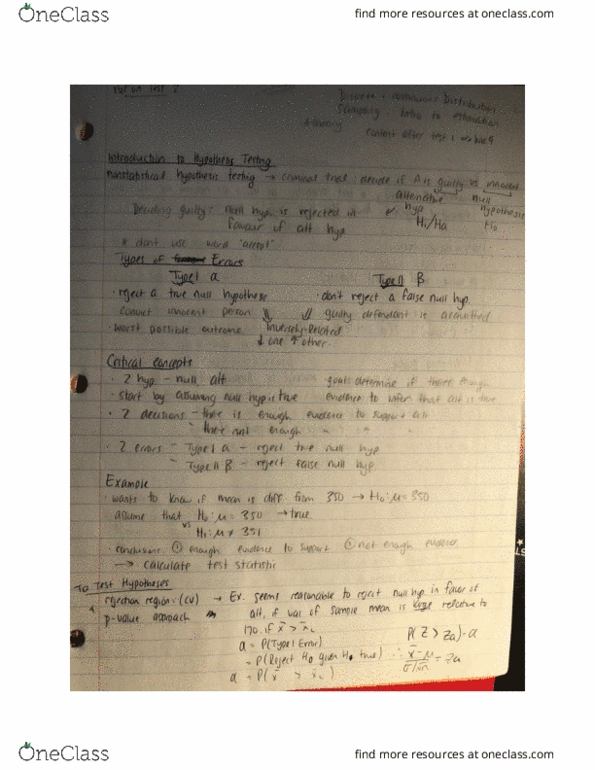 OneClass
find more resources at oneclass.com
Discrete + continuous Distribution
Sampling Intro to estimation
content after test 1 => 
Introduction to Hypothesis Testing
nonstatistical hypothesis testing → criminal trial: decide if A is guilty vs innocent
alternative null
hyp hypothesis
Deciding guilty: null hyp. is rejected in H₁/Ha H₀
favour of alt hyp
* don't use word "accept"
Types of Errors
Type I α Type II β
· reject a true null hypothese · don't reject a false null hyp.
convict innocent person guilty defendant is acquitted
· worst possible outcome inversely-Related
↓ one ↑ other.
Critical concepts
· 2 hyp - null, alt goal: determine if theres enough
· start by assuming null hyp is true evidence to infer that alt is true
· 2 decisions - there is enough evidence to support alt
- there isnt enough " " "
· 2 errors - Type I α - reject true null hyp
- Type II β - reject false null hyp
Example
· wants to know if mean is diff. from 350 → H₀: μ = 350
assume that H₀: μ = 350 → true.
vs
H₁: μ ≠ 351
· conclusions ① enough evidence to support ② not enough evidence
→ calculate test statistic
To Test Hypotheses
rejection region: (CV) → Ex. seems reasonable to reject null hyp in favor of
p-value approach alt, if value of sample mean is large relative to
170. if x̄ > x̄L P(Z > Zα) = α
α = P(Type I Error)
= P(Reject H₀ given H₀ true) ∴ x̄-μ / σ/√n = Zα
α = P(x̄ > x̄L)
OneClass
find more resources at oneclass.com